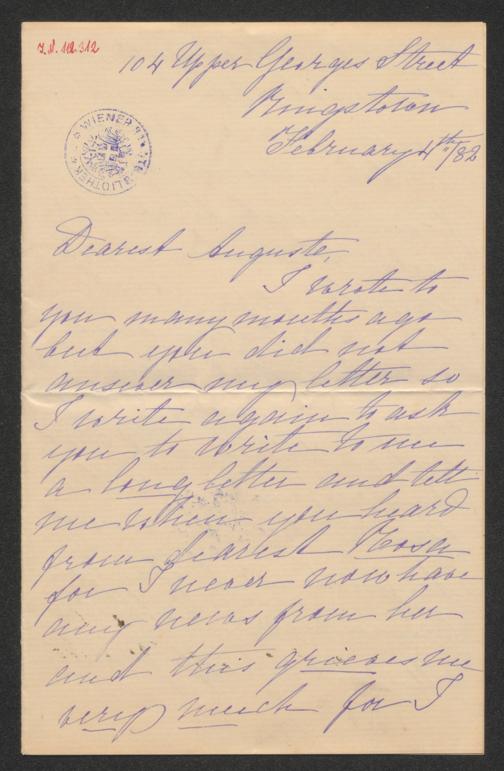 J.N. 112.312
104 Upper Georges Street
Kingstown
February 4th/82
WIENER STADTBIBLIOTHEK
Dearest Auguste,
I wrote to
you many months ago
but you did not
answer my letter so
I write again to ask
you to write to me
a long letter and tell
me when you heard
from dearest Rosa
for I never now have
any news from her
and this grieves me
very much for I